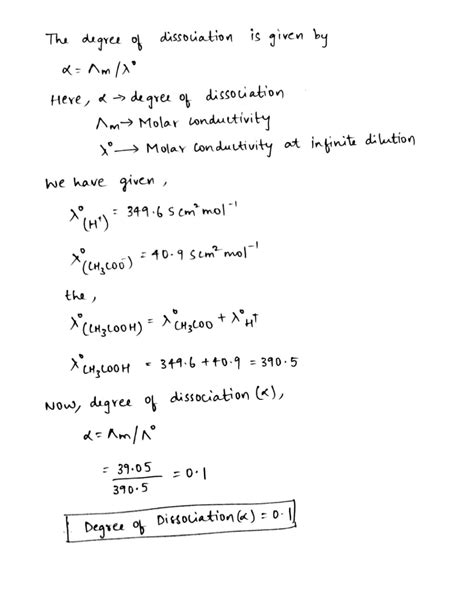 The degree of dissociation is given by
α = Λm/λ°
Here, α → degree of dissociation
Λm → Molar conductivity
λ° → Molar conductivity at infinite dilution
We have given,
λ°(H⁺) = 349.6 S cm² mol⁻¹
λ°(CH₃COO⁻) = 40.9 S cm² mol⁻¹
the,
λ°(CH₃COOH) = λ°CH₃COO + λ°H⁺
λ°CH₃COOH = 349.6 + 40.9 = 390.5
Now, degree of dissociation (α),
α = Λm/Λ°
= 39.05/390.5 = 0.1
Degree of Dissociation (α) = 0.1